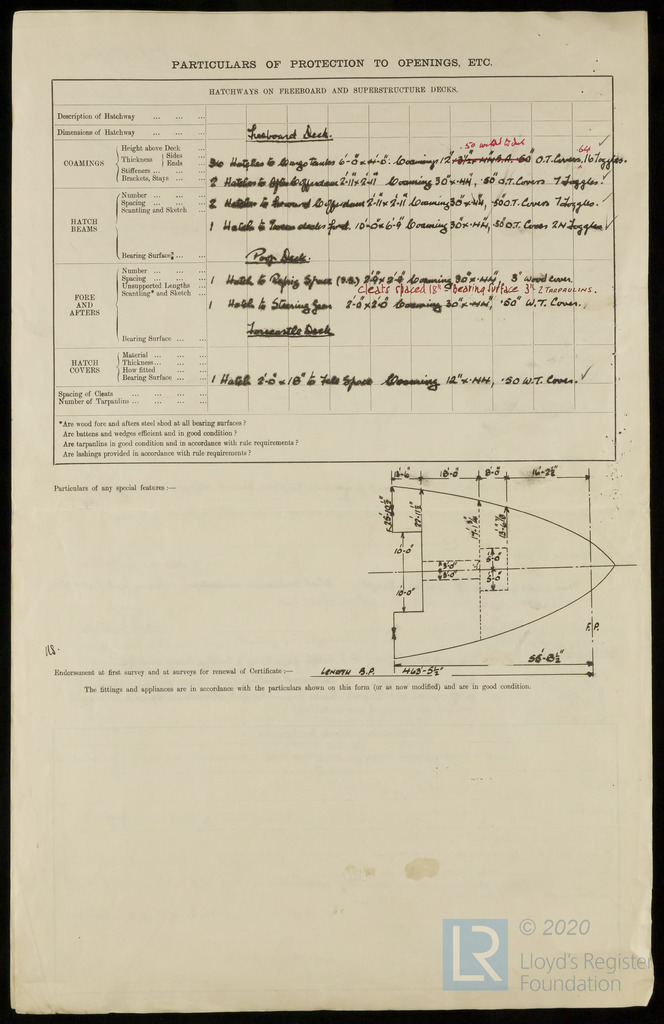 PARTICULARS OF PROTECTION TO OPENINGS, ETC.
HATCHWAYS ON FREEBOARD AND SUPERSTRUCTURE DECKS.
Description of Hatchway ... ... ...
Dimensions of Hatchway ... ... ...
Freeboard Deck.
COAMINGS
Height above Deck ...
Thickness { Sides ...
Ends ...
Stiffeners ... ... ...
Brackets, Stays ... ...
.50 welded to deck
.64
Hatches to Cargo Tanks 6'-0" x 4'-0". Coaming 12" O.T. Covers, 16 Toggles.
2 Hatches to After Cofferdam 2'-11" x 2'-11" Coaming 30" x .44, .50" O.T. Covers 7 Toggles.
HATCH BEAMS
Number ... ... ...
Spacing ... ... ...
Scantling and Sketch ...
Bearing Surface* ... ...
2 Hatches to Forward Cofferdam 2'-11 x 2-11 Coaming 30" x .44, .50 O.T. Covers 7 Toggles.
1 Hatch to Tween decks ford. 10'-0" x 6'-9" Coaming 30" x .44", .50 O.T. Cover 24 Toggles
Poop Deck.
FORE AND AFTERS
Number ... ... ...
Spacing ... ... ...
Unsupported Lengths ...
Scantling* and Sketch ...
Bearing Surface ... ...
1 Hatch to Refrig Space Coaming 30" x .44", 3" Wood cover.
Cleats spaced 18" Bearing surface 3" 2 TARPAULINS.
1 Hatch to Steering Gear 2'-0" x 2'-0" Coaming 30" x .44", .50" W.T. Cover.
Forecastle Deck
HATCH COVERS
Material ... ... ...
Thickness ... ... ...
How fitted ... ... ...
Bearing Surface ... ...
1 Hatch 2'-0" x 18" to Space Coaming 12" x .44, .50 W.T. Cover.
Spacing of Cleats ... ... ... ...
Number of Tarpaulins ... ... ... ...
*Are wood fore and afters steel shod at all bearing surfaces?
Are battens and wedges efficient and in good condition?
Are tarpaulins in good condition and in accordance with rule requirements?
Are lashings provided in accordance with rule requirements?
Particulars of any special features:—
18'-0" 8'-0" 16'-2½"
10'-0"
3'-0"
3'-0"
5'-0"
5'-0"
10'-0"
F.P.
56'-8½"
Endorsement at first survey and at surveys for renewal of Certificate:—
LENGTH B.P. 463'-5½"
The fittings and appliances are in accordance with the particulars shown on this form (or as now modified) and are in good condition.
LR
© 2020
Lloyd's Register
Foundation